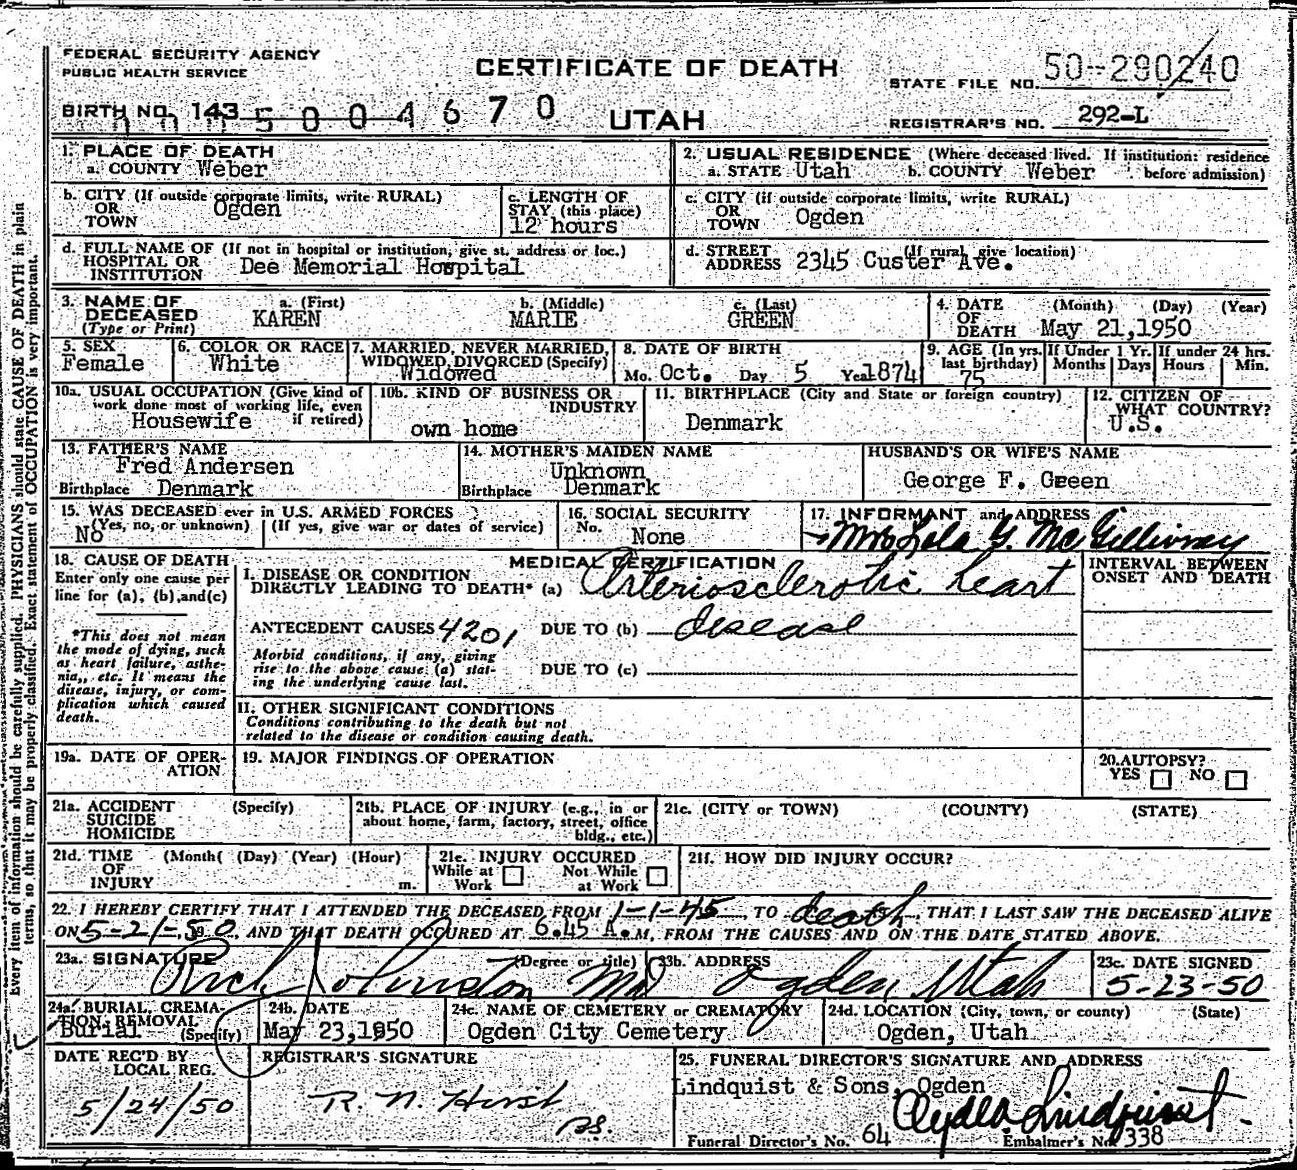 FEDERAL SECURITY AGENCY
PUBLIC HEALTH SERVICE
CERTIFICATE OF DEATH
STATE FILE NO. 50-290240
BIRTH NO. 143
5004670
UTAH
REGISTRAR'S NO. 292-L
1. PLACE OF DEATH
a. COUNTY Weber
2. USUAL RESIDENCE (Where deceased lived. If institution: residence before admission)
a. STATE Utah b. COUNTY Weber
b. CITY (If outside corporate limits, write RURAL)
OR
TOWN Ogden
c. LENGTH OF
STAY (this place)
12 hours
c. CITY (if outside corporate limits, write RURAL)
OR
TOWN Ogden
d. FULL NAME OF (If not in hospital or institution, give st. address or loc.)
HOSPITAL OR
INSTITUTION Dee Memorial Hospital
d. STREET (If rural, give location)
ADDRESS 2345 Custer Ave.
3. NAME OF
DECEASED
(Type or Print)
a. (First) b. (Middle) c. (Last)
KAREN MARIE GREEN
4. DATE (Month) (Day) (Year)
OF
DEATH May 21,1950
5. SEX
Female
6. COLOR OR RACE
White
7. MARRIED, NEVER MARRIED,
WIDOWED DIVORCED (Specify)
Widowed
8. DATE OF BIRTH
Mo. Oct. Day 5 Year 1874
9. AGE (In yrs.
last birthday)
75
If Under 1 Yr.
Months Days
If under 24 hrs.
Hours Min.
10a. USUAL OCCUPATION (Give kind of
work done most of working life, even
if retired)
Housewife
10b. KIND OF BUSINESS OR
INDUSTRY
own home
11. BIRTHPLACE (City and State or foreign country)
Denmark
12. CITIZEN OF
WHAT COUNTRY?
U.S.
13. FATHER'S NAME
Fred Andersen
Birthplace Denmark
14. MOTHER'S MAIDEN NAME
Unknown
Birthplace Denmark
HUSBAND'S OR WIFE'S NAME
George F. Green
15. WAS DECEASED ever in U.S. ARMED FORCES
(Yes, no, or unknown) (If yes, give war or dates of service)
No
16. SOCIAL SECURITY
No. None
17. INFORMANT and ADDRESS
Mrs Lola G. McGillivray
18. CAUSE OF DEATH
Enter only one cause per
line for (a), (b), and (c)
*This does not mean
the mode of dying, such
as heart failure, asthe-
nia, etc. It means the
disease, injury, or com-
plication which caused
death.
MEDICAL CERTIFICATION
I. DISEASE OR CONDITION
DIRECTLY LEADING TO DEATH* (a) Arteriosclerotic heart
ANTECEDENT CAUSES 4201 DUE TO (b) disease
Morbid conditions, if any, giving
rise to the above cause (a) stat-
ing the underlying cause last.
DUE TO (c)
INTERVAL BETWEEN
ONSET AND DEATH
II. OTHER SIGNIFICANT CONDITIONS
Conditions contributing to the death but not
related to the disease or condition causing death.
19a. DATE OF OPER-
ATION
19. MAJOR FINDINGS OF OPERATION
20. AUTOPSY?
YES NO
21a. ACCIDENT (Specify)
SUICIDE
HOMICIDE
21b. PLACE OF INJURY (e.g., in or
about home, farm, factory, street, office
bldg., etc.)
21c. (CITY or TOWN) (COUNTY) (STATE)
21d. TIME (Month) (Day) (Year) (Hour)
OF
INJURY m.
21e. INJURY OCCURED
While at Work Not While at Work
21f. HOW DID INJURY OCCUR?
22. I HEREBY CERTIFY THAT I ATTENDED THE DECEASED FROM 1-1-45, TO death, THAT I LAST SAW THE DECEASED ALIVE
ON 5-21-50, AND THAT DEATH OCCURED AT 6.45 A.M, FROM THE CAUSES AND ON THE DATE STATED ABOVE.
23a. SIGNATURE (Degree or title)
Rich Johnston MD
23b. ADDRESS
Ogden Utah
23c. DATE SIGNED
5-23-50
24a. BURIAL, CREMA-
TION, REMOVAL
(Specify)
Burial
24b. DATE
May 23,1950
24c. NAME OF CEMETERY or CREMATORY
Ogden City Cemetery
24d. LOCATION (City, town, or county) (State)
Ogden, Utah
DATE REC'D BY
LOCAL REG.
5/24/50
REGISTRAR'S SIGNATURE
R. N. Hirst
25. FUNERAL DIRECTOR'S SIGNATURE AND ADDRESS
Lindquist & Sons, Ogden
Clyde Lindquist
Funeral Director's No. 64 Embalmer's No. 338
Every item of information should be carefully supplied. PHYSICIANS should state CAUSE OF DEATH in plain
terms, so that it may be properly classified. Exact statement of OCCUPATION is very important.